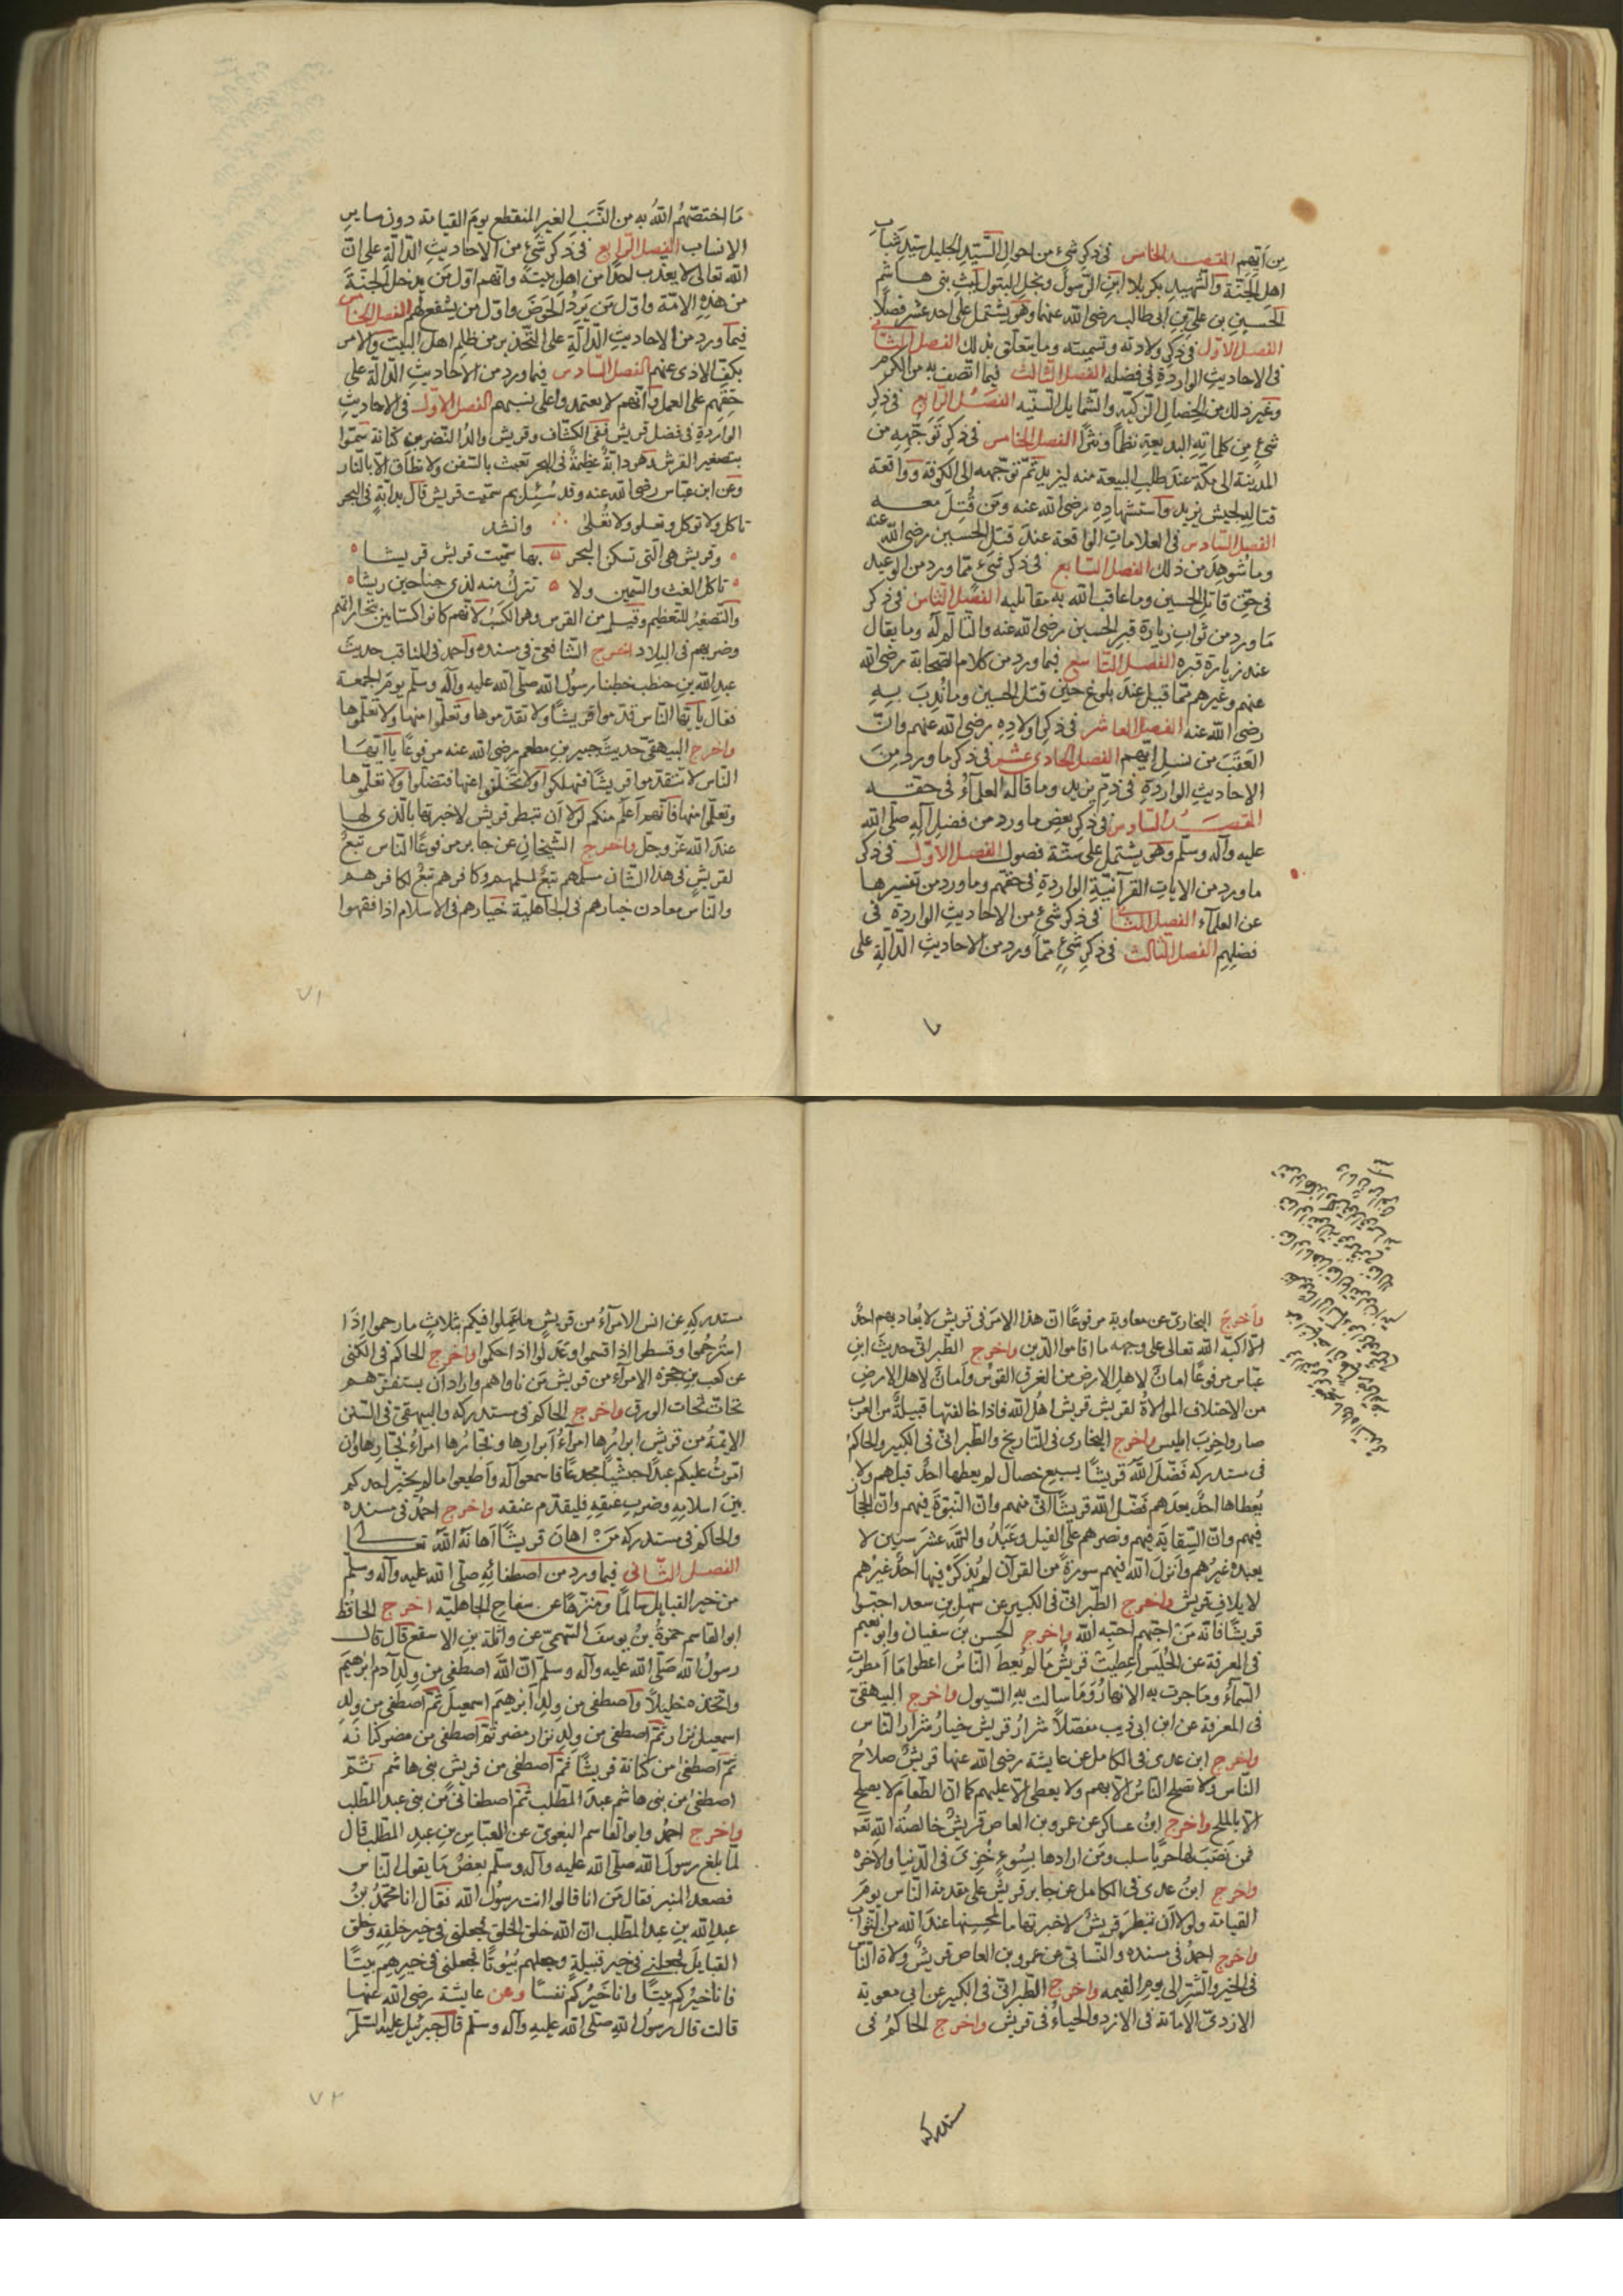 من آيتهم المقصد الخامس في ذكر شيء من احوال السّيّد الجليل سيّد شباب
اهل الجنّة والشّهيد بكربلا ابن الرّسول ونجل البتول ليث بنى هاشم
الحسين بن علىّ بن ابى طالب رضى الله عنهما وهو يشتمل على احد عشر فصلًا
الفصل الاوّل فى ذكر ولادته وتسميته وما يتعلّق بذلك الفصل الثّانى
فى الاحاديث الواردة فى فضله الفصل الثّالث فيما اتّصف به من الكرم
وغير ذلك من الخصال الزّكيّه والشّمايل السّنيّه الفصل الرّابع فى ذكر
شئ من كلماته البديعة نظمًا ونثرًا الفصل الخامس فى ذكر توجّهه من
المدينة الى مكّة عند طلب البيعة منه ليزيد ثمّ توجّهه الى الكوفة وواقعة
قتاله لجيش يزيد واستشهاده رضى الله عنه ومن قُتِلَ معه
الفصل السّادس فى العلامات الواقعة عند قتل الحسين رضى الله عنه
وما شوهد من ذلك الفصل السّابع فى ذكر شئ ممّا ورد من الوعيد
فى حقّ قاتل الحسين وما عاقب الله به مقاتليه الفصل الثّامن فى ذكر
ما ورد من ثواب زيارة قبر الحسين رضى الله عنه والتألّم له وما يقال
عند زيارة قبره الفصل التّاسع فيما ورد من كلام الصّحابة رضى الله
عنهم وغيرهم ممّا قيل عند بلوغ حين قتل الحسين وما نُدِبَ به
رضى الله عنه الفصل العاشر فى ذكر اولاده رضى الله عنهم وانّ
العقب من نسل ايّهم الفصل الحادى عشر فى ذكر ما ورد من
الاحاديث الواردة فى ذمّ يزيد وما قاله العلمآء فى حقّه
المقصد السّادس فى ذكر بعض ما ورد من فضل آله صلّى الله
عليه وآله وسلّم وهو يشتمل على ستّة فصول الفصل الاوّل فى ذكر
ما ورد من الايات القرآنيّة الواردة فى حقّهم وما ورد من تفسيرها
عن العلمآء الفصل الثّانى فى ذكر شئ من الاحاديث الواردة فى
فضلهم الفصل الثّالث فى ذكر شئ ممّا ورد من الاحاديث الدّالّة على
ما
ما اختصّهم الله به من النّسب الغير المنقطع يوم القيامة دون ساير
الانساب الفصل الرّابع فى ذكر شئ من الاحاديث الدّالّة على انّ
الله تعالى لا يعذب احدًا من اهل بيته وانهم اوّل من يدخل الجنّة
من هذه الامّة واوّل من يرد الحوض واوّل من يشفع لهم الفصل الخامس
فيما ورد من الاحاديث الدّالّة على التّحذير من ظلم اهل البيت والامر
بكفّ الاذى عنهم الفصل السّادس فيما ورد من الاحاديث الدّالّة على
حثّهم على العمل وانّهم لا يعتمدوا على نسبهم الفصل الاوّل فى الاحاديث
الواردة فى فضل قريش ففى الكشّاف وقريش والد النّضر بن كنانة سمّوا
بتصغير القرش وهو دابّة عظيمة فى البحر تعبث بالسّفن ولا تطاق الا بالنّار
وعن ابن عبّاس رضى الله عنه وقد سُئِل بم سمّيت قريش قال بدابّة فى البحر
تاكل ولا توكل وتعلو ولا تُعلى وانشد
وقريش هى الّتى تسكن البحر بها سمّيت قريش قريشا
تاكل الغث والسّمين ولا تترك منه لذى جناحين ريشا
والتّصغير للتّعظيم وقيل من القرش وهو الكسب لانّهم كانوا كسّابين بتجاراتهم
وضربهم فى البلاد اخرج الشّافعى فى مسنده واحمد فى المناقب حديث
عبد الله بن حنطب خطبنا رسول الله صلّى الله عليه وآله وسلّم يوم الجمعة
فقال يا ايّها النّاس قدّموا قريشًا ولا تقدّموها وتعلّموا منها ولا تعلّموها
واخرج البيهقىّ حديث جبير بن مطعم رضى الله عنه مرفوعًا يا ايّها
النّاس لا تتقدّموا قريشًا فتهلكوا ولا تتخلّفوا عنها فتضلّوا ولا تعلّموها
وتعلّموا منها فانّهم اعلم منكم لولا ان تبطر قريش لاخبرتها بالّذى لها
عند الله عزّ وجلّ واخرج الشّيخان عن جابر مرفوعًا النّاس تبعٌ
لقريش فى هذا الشّان مسلمهم تبعٌ لمسلمهم وكافرهم تبعٌ لكافرهم
والنّاس معادن خيارهم فى الجاهليّة خيارهم فى الاسلام اذا فقهوا
٧١
واخرج البخارىّ عن معاوية مرفوعًا انّ هذا الامر فى قريش لا يعاديهم احدٌ
الّا اكبّه الله تعالى على وجهه ما اقاموا الدّين واخرج الطّبرانىّ حديث ابن
عبّاس مرفوعًا امان لاهل الارض من الغرق القوس وامان لاهل الارض
من الاختلاف الموالاة لقريش قريش اهل الله فاذا خالفتها قبيلة من العرب
صاروا حزب ابليس واخرج البخارى فى التّاريخ والطّبرانىّ فى الكبير والحاكم
فى مستدركه فضّل الله قريشًا بسبع خصال لم يعطها احدٌ قبلهم ولا
يُعطاها احدٌ بعدهم فضّل الله قريشًا انّى منهم وانّ النّبوّة فيهم وانّ الحجابة
فيهم وانّ السّقاية فيهم ونصرهم على الفيل وعبدوا الله عشر سنين لا
يعبده غيرهم وانزل الله فيهم سورة من القرآن لم يُذكر فيها احدٌ غيرهم
لايلاف قريش واخرج الطّبرانىّ فى الكبير عن سهل بن سعد احبّوا
قريشًا فانّه من احبّهم احبّه الله واخرج الحسن بن سفيان وابو نعيم
فى المعرفة عن الحليس اُعطيت قريش ما لم يُعط النّاس اعطوا ما امطرت
السّمآء وما جرت به الانهار وما سالت به السّيول واخرج البيهقىّ
فى المعرفة عن ابن ابى ذيب مفصّلًا شرار قريش خيار شرار النّاس
واخرج ابن عدى فى الكامل عن عايشة رضى الله عنها قريش صلاح
النّاس ولا تصلح النّاس الّا بهم ولا يعطى الّا عليهم كما انّ الطّعام لا يصلح
الّا بالملح واخرج ابن عساكر عن عمرو بن العاص قريش خالصة الله تعَ
فمن نصب لها حربًا سلب ومن ارادها بسوء خزى فى الدّنيا والاخره
واخرج ابن عدى فى الكامل عن جابر قريش على مقدمة النّاس يوم
القيامة ولولا ان تبطر قريش لاخبرتها ما لمحسنها عند الله من الثّواب
واخرج احمد فى مسنده والنّسائى عن عمرو بن العاص قريش ولاة النّاس
فى الخير والشّرّ الى يوم القيمه واخرج الطّبرانىّ فى الكبير عن ابى معوية
الازدىّ الامانة فى الازد والحياء فى قريش واخرج الحاكم فى
مستدركه
مستدركه عن انس الامرآء من قريش ما عملوا فيكم بثلاث ما رحموا اذا
استُرحموا وقسطوا اذا قسموا وعدلوا اذا حكموا واخرج الحاكم فى الكنى
عن كعب بن عجزه الامرآء من قريش من ناواهم واراد ان يستفزّهم
تحات تحات الورق واخرج الحاكم فى مستدركه والبيهقىّ فى السّنن
الايمّة من قريش ابرارها امرآء ابرارها وفجّارها امرآء فجّارها وان
امّرتُ عليكم عبدًا حبشيًّا مجدعًا فاسمعوا له واطيعوا ما لم يخيّر احدكم
بين اسلامه وضرب عنقه فليقدّم عنقه واخرج احمد فى مسنده
والحاكم فى مستدركه من اهان قريشًا اهانه الله تعالى
الفصل الثّانى فيما ورد من اصطفائه صلّى الله عليه وآله وسلّم
من خير القبايل سالمًا ومنزّهًا عن سفاح الجاهليّه اخرج الحافظ
ابو القاسم حمزة بن يوسف السّهمىّ عن واثلة بن الاسقع قال قال
رسول الله صلّى الله عليه وآله وسلّم انّ الله اصطفى من ولد آدم ابرهيم
واتّخذه خليلًا واصطفى من ولد ابرهيم اسمعيل ثمّ اصطفى من ولد
اسمعيل نزار ثمّ اصطفى من ولد نزار مضر ثمّ اصطفى من مضر كنانه
ثمّ اصطفى من كنانة قريشًا ثمّ اصطفى من قريش بنى هاشم ثمّ
اصطفى من بنى هاشم عبد المطّلب ثمّ اصطفانى من بنى عبد المطّلب
واخرج احمد وابو القاسم البغوىّ عن العبّاس بن عبد المطّلب قال
لمّا بلغ رسول الله صلّى الله عليه وآله وسلّم بعض ما يقول النّاس
فصعد المنبر فقال من انا قالوا انت رسول الله فقال انا محمّد بن
عبد الله بن عبد المطّلب انّ الله خلق الخلق فجعلنى فى خير خلقه وخلق
القبايل فجعلنى فى خير قبيلة وجعلهم بيوتًا فجعلنى فى خيرهم بيتًا
فانا خيركم بيتًا وانا خيركم نفسًا وعن عايشة رضى الله عنها
قالت قال رسول الله صلّى الله عليه وآله وسلّم قال جبرئيل عليه السّلام
٧٢